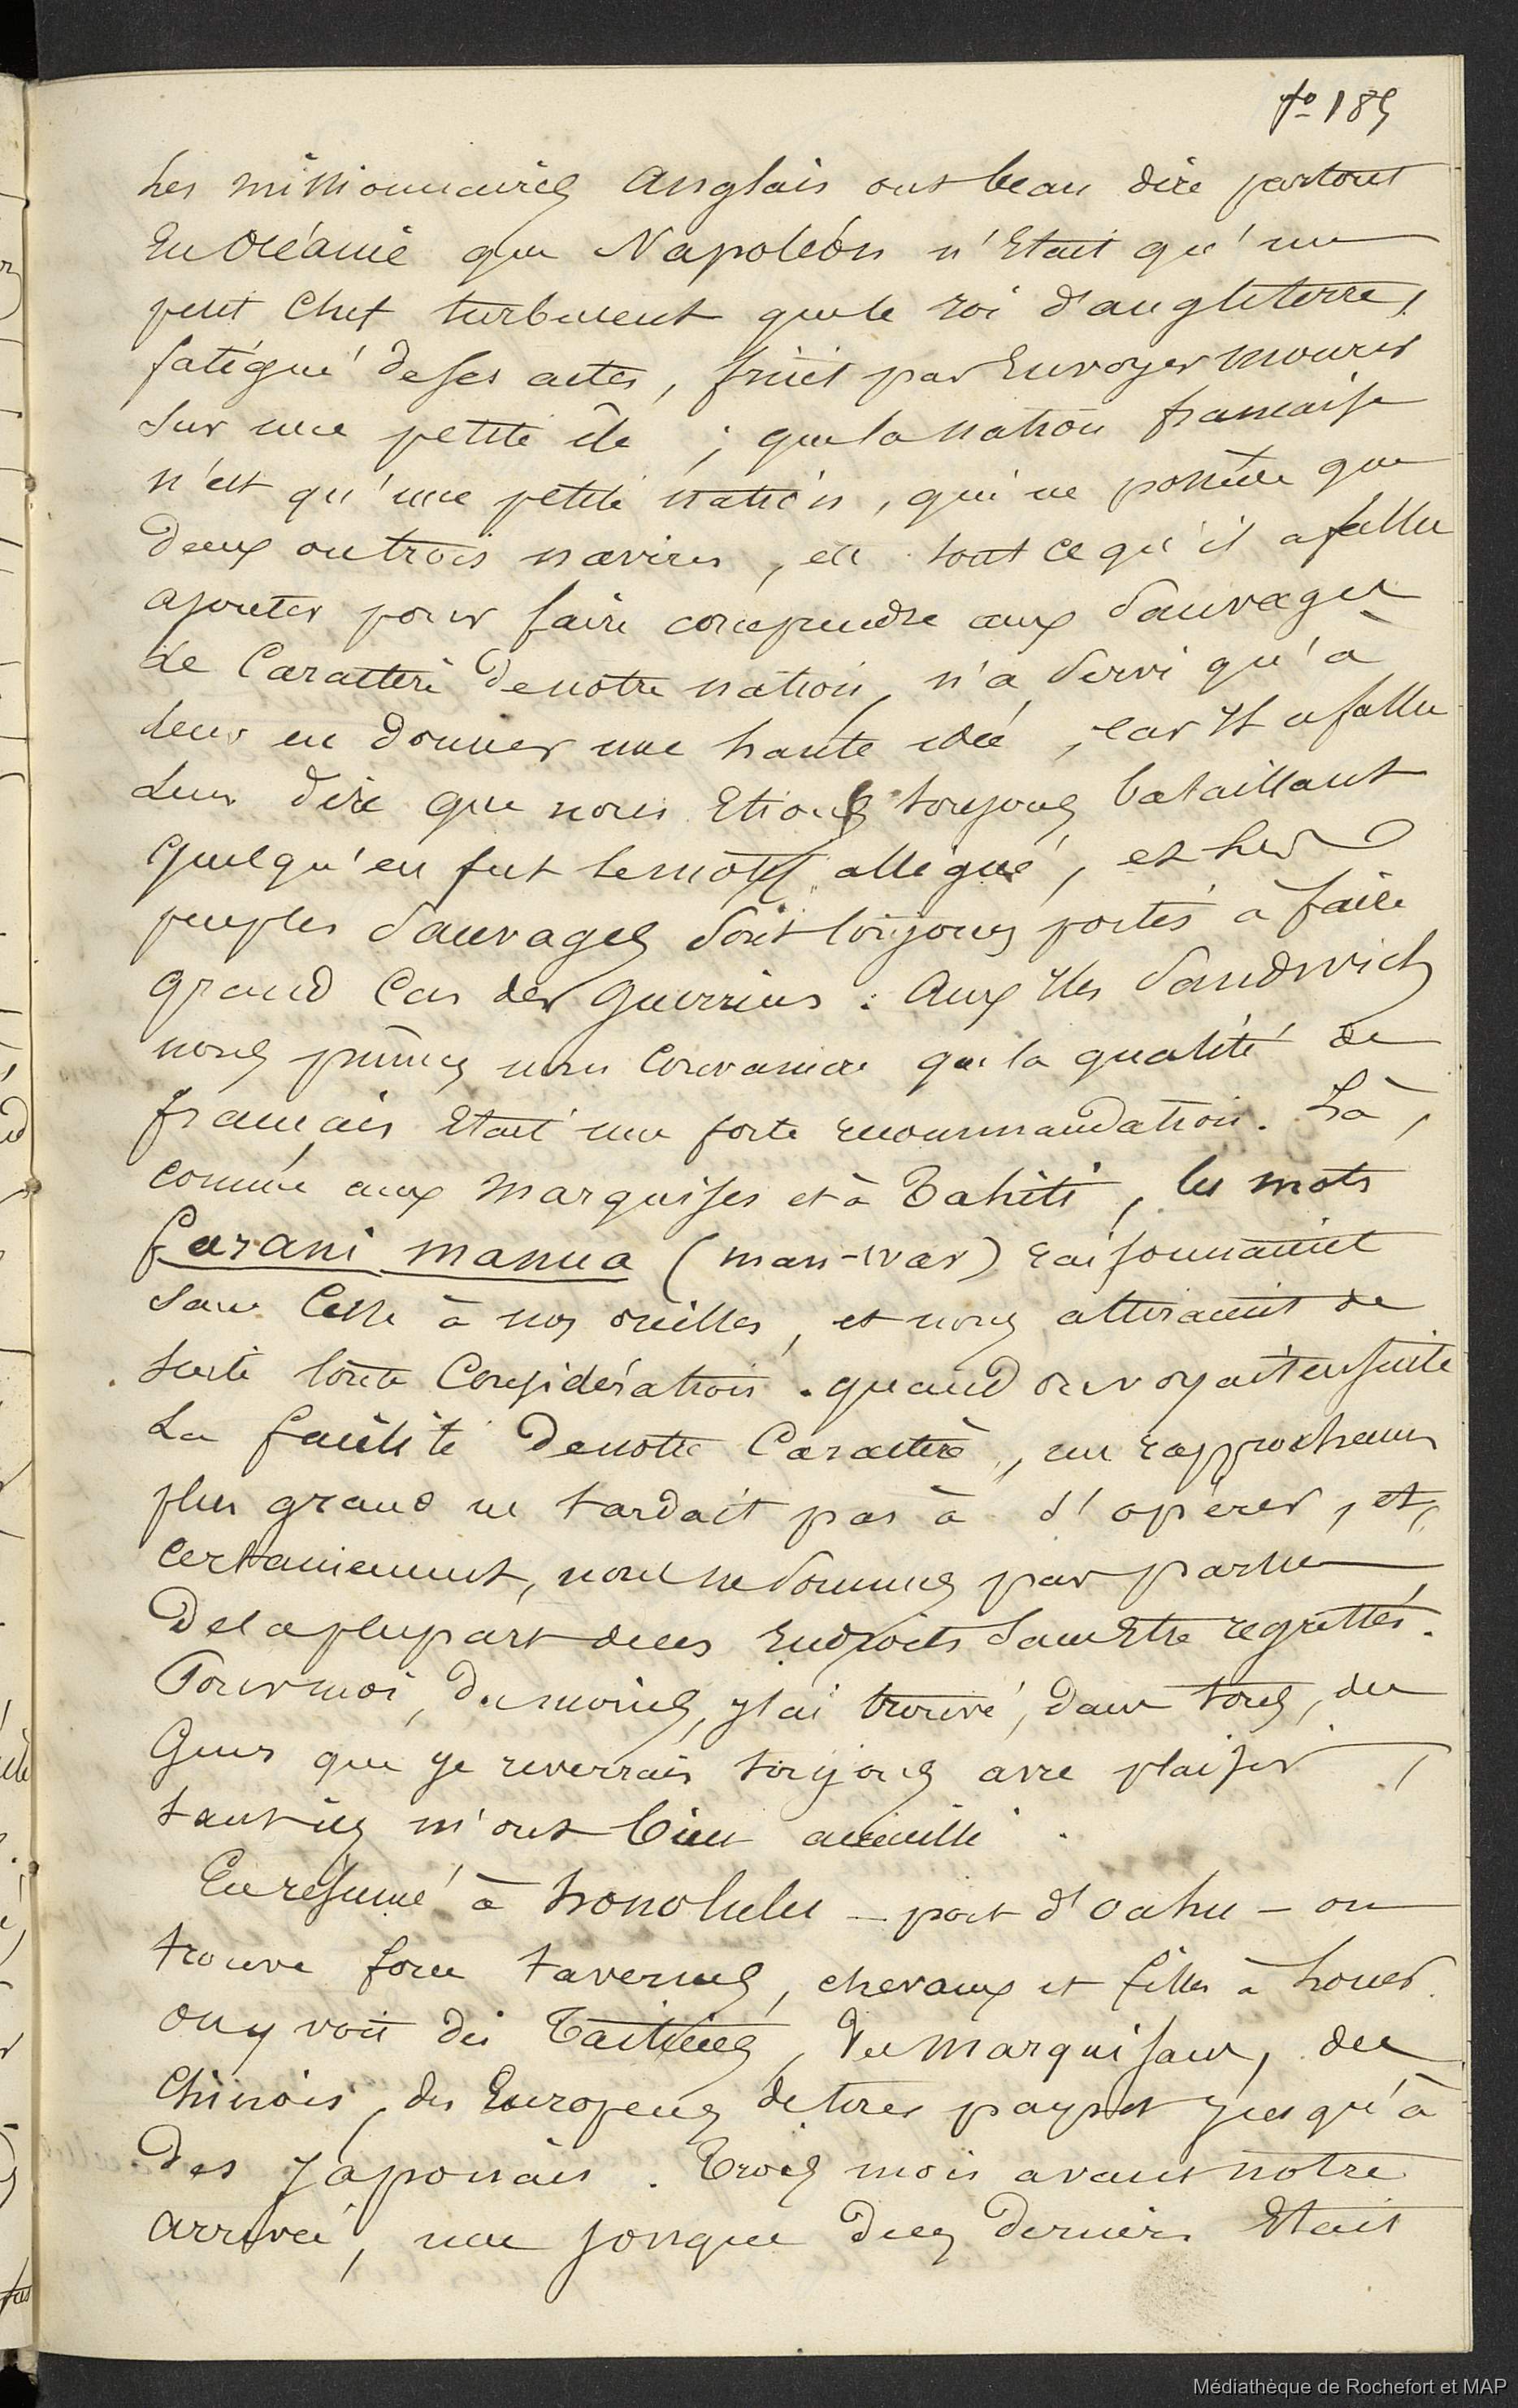 fo 185
Les missionnaires anglais ont beau dire partout
En Océanie que Napoléon n'Etait qu'un
petit Chef turbulent que le roi d'angleterre,
fatigué de ses actes, finit par Envoyer mourir
Sur une petite île ; que la nation francaise
n'est qu'une petite nation, qui ne possède que
Deux ou trois navires, etc tout ce qu'il a fallu
ajouter pour faire comprendre aux Sauvages
Le Caractère De notre nation, n'a Servi qu'à
Leur en Donner une haute idée, car Il a fallu
Leur Dire que nous Etions toujours bataillant
Quelqu'en fut le motif allégué, et les
peuples Sauvages Sont toujours portés à faire
grand Cas des guerriers. Aux Iles Sandwich
nous pûmes nous Convaincre que la qualité de
français Etait une forte recommandation. Là,
comme aux Marquises et à Tahiti, les mots
farani manua (man-war) raisonnaient
Sans Cesse à nos oreilles, et nous attiraient de
Suite toute Considération. quand on voyait ensuite
La facilité De notre Caractère, un rapprochement
plus grand ne tardait pas à S'opérer, et,
Certainement, nous ne Sommes pas partis
De la plupart de ces Endroits Sans Etre regrettés.
Pour moi, Du moins, J'ai trouvé, Dans tous, des
Gens que je reverrais toujours avec plaisir,
tant ils m'ont bien accueilli.
En résumé à honolulu - port d'oahu - on
trouve force tavernes, chevaux et filles à Louer.
On y voit des Taïtiens, Des Marquisans, des
Chinois, des Européens de tous pays et jusqu'à
Des Japonais. Trois mois avant notre
arrivée, une Jonque De ces Derniers Etait
Médiathèque de Rochefort et MAP